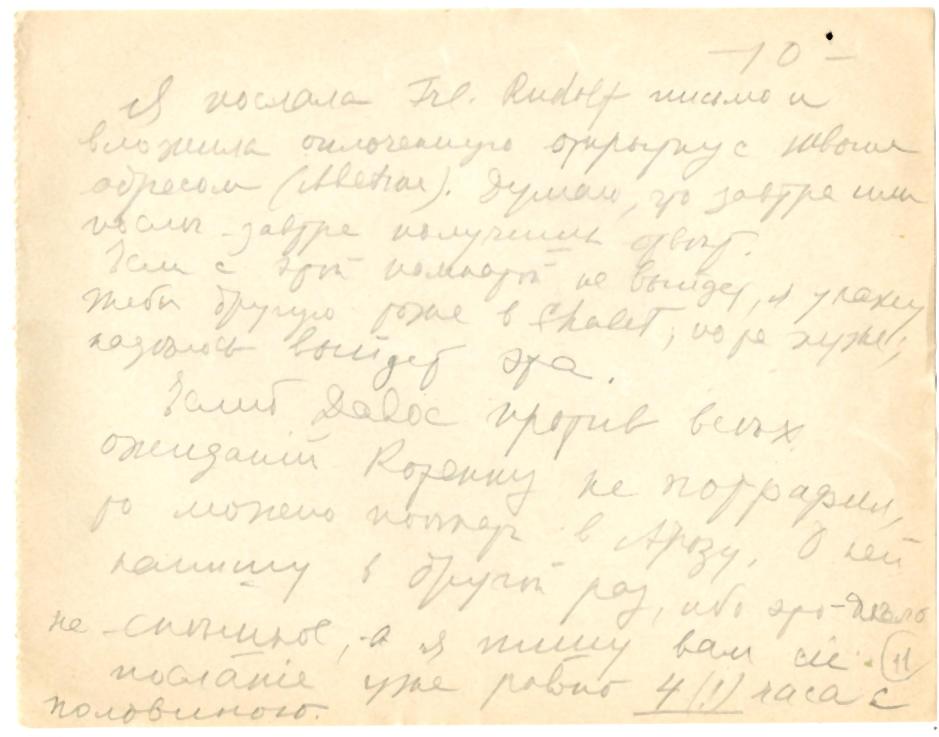 - 10 -
Я послала Frl. Rudolf письмо и
вложила оплоченную открытку с твоим
адресом (). Думаю, что завтра или
после-завтра получишь отвѣт.
Если с этой комнатой не выйдет, я укажу
тебѣ другую тоже в Chalet, но
надѣюсь выйдет эта.
Если б Давос против всѣх
ожиданий не потрафил,
то можно поехать в Арозу. О ней
напишу в другой раз, ибо это-дѣло
не спѣшное, а я пишу вам сіе (11)
посланіе уже ровно 4 (!) часа с
половиною.